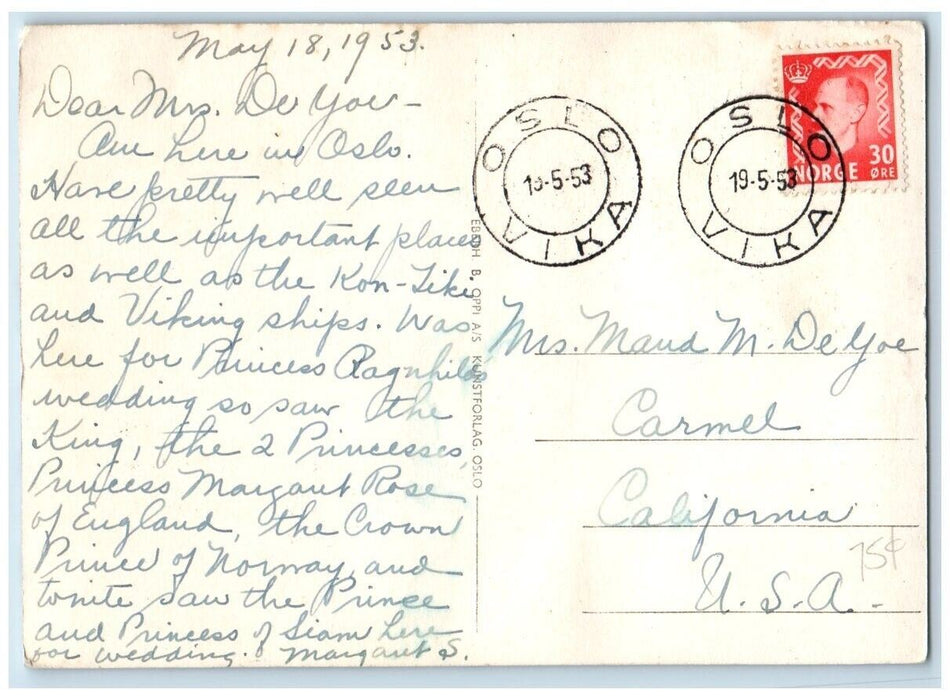 May 18, 1953.
Dear Mrs. De Yoe-
Am here in Oslo.
Have pretty well seen
all the important places
as well as the Kon-Tiki
and Viking ships. Was
here for Princess Ragnhilds
wedding so saw the
King, the 2 Princesses,
Princess Margaret Rose
of England, the Crown
Prince of Norway, and
tonite saw the Prince
and Princess of Siam here
for wedding. Margaret S.
EBERH B. OPPI A/S KUNSTFORLAG. OSLO
OSLO
19-5-53
VIKA
OSLO
19-5-53
VIKA
30
NORGE ØRE
Mrs. Maud M. De Yoe
Carmel
California
U. S. A.-
75¢